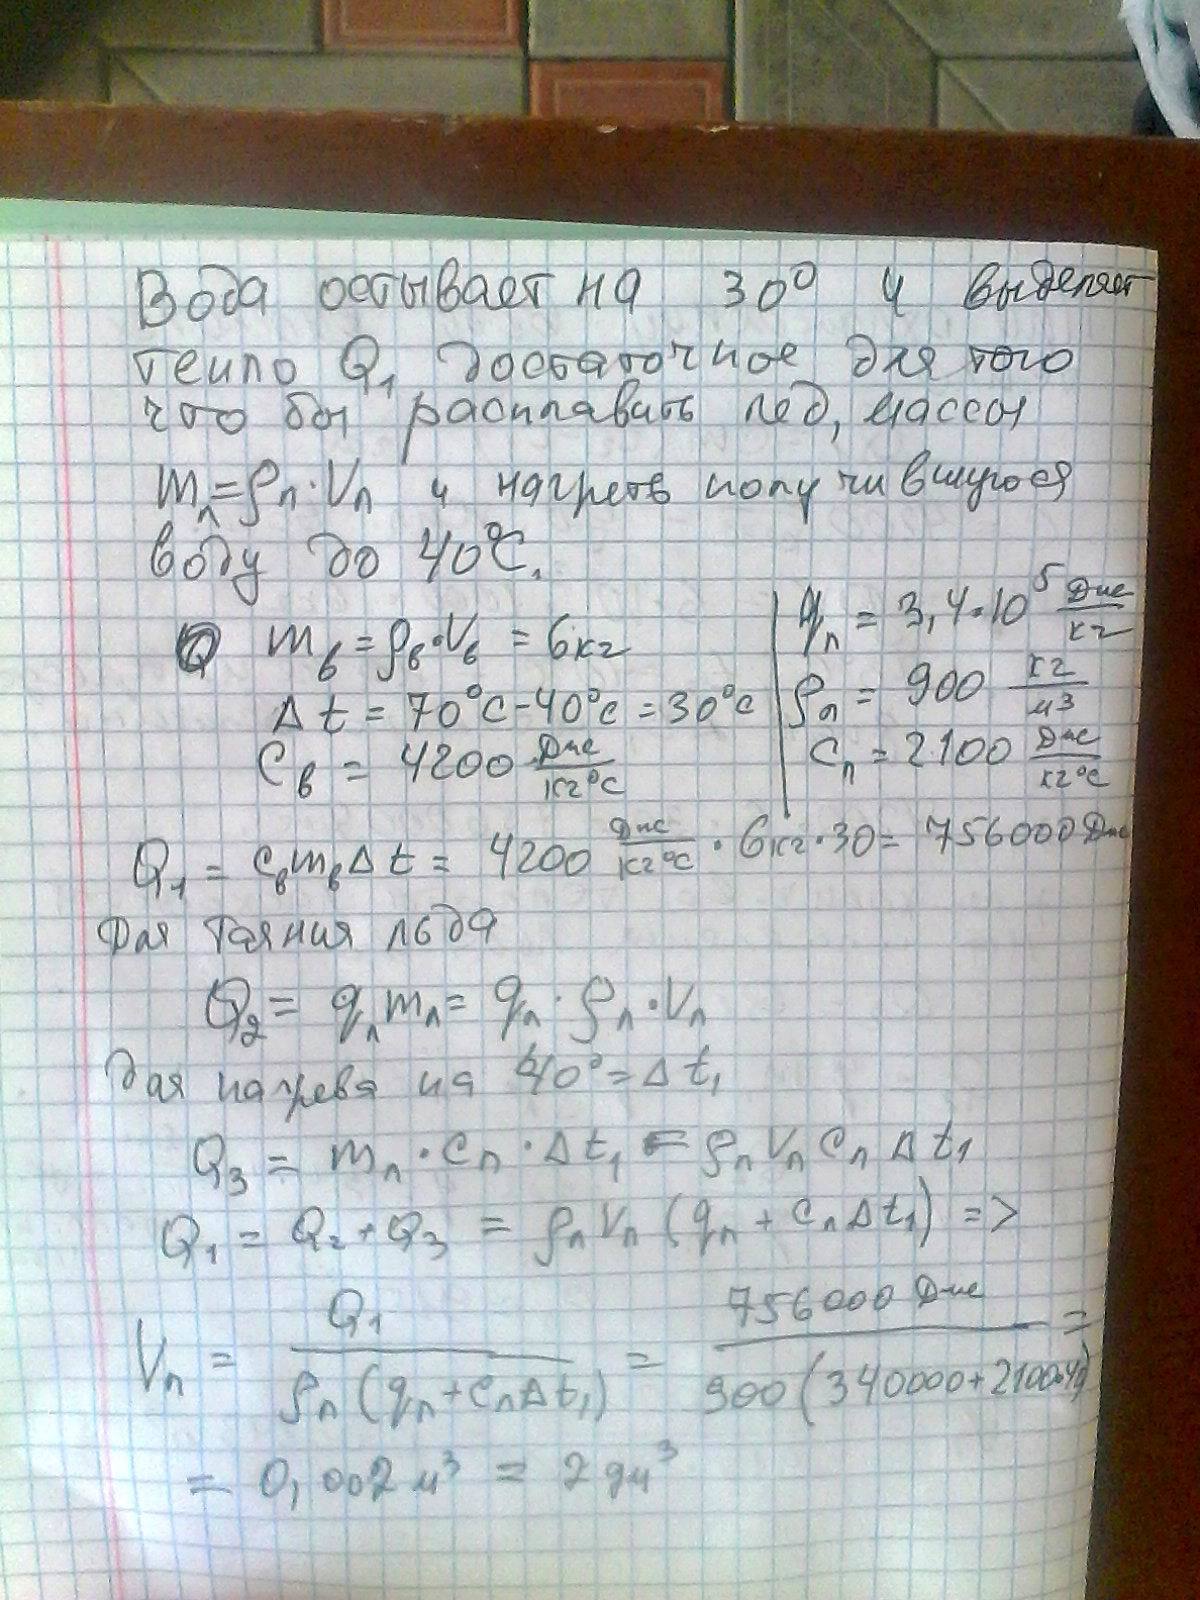 Вода остывает на 30° и выделяет
тепло Q₁ достаточное для того
что бы расплавить лёд, массы
mл = ρл · Vл и нагреть получившуюся
воду до 40°C.
mв = ρв · Vв = 6 кг
Δt = 70°C - 40°C = 30°C
Cв = 4200 Дж/кг°C
qл = 3,4 · 10⁵ Дж/кг
ρл = 900 кг/м³
Cл = 2100 Дж/кг°C
Q₁ = CвmвΔt = 4200 Дж/кг°C · 6кг · 30 = 756000 Дж
Для таяния льда
Q₂ = qлmл = qл · ρл · Vл
Для нагрева на 40° = Δt₁
Q₃ = mл · Cл · Δt₁ = ρлVлCлΔt₁
Q₁ = Q₂ + Q₃ = ρлVл (qл + CлΔt₁) =>
Vл = Q₁ / ρл (qл + CлΔt₁) = 756000 Дж / 900 (340000 + 2100·40) =
= 0,002 м³ = 2 дм³